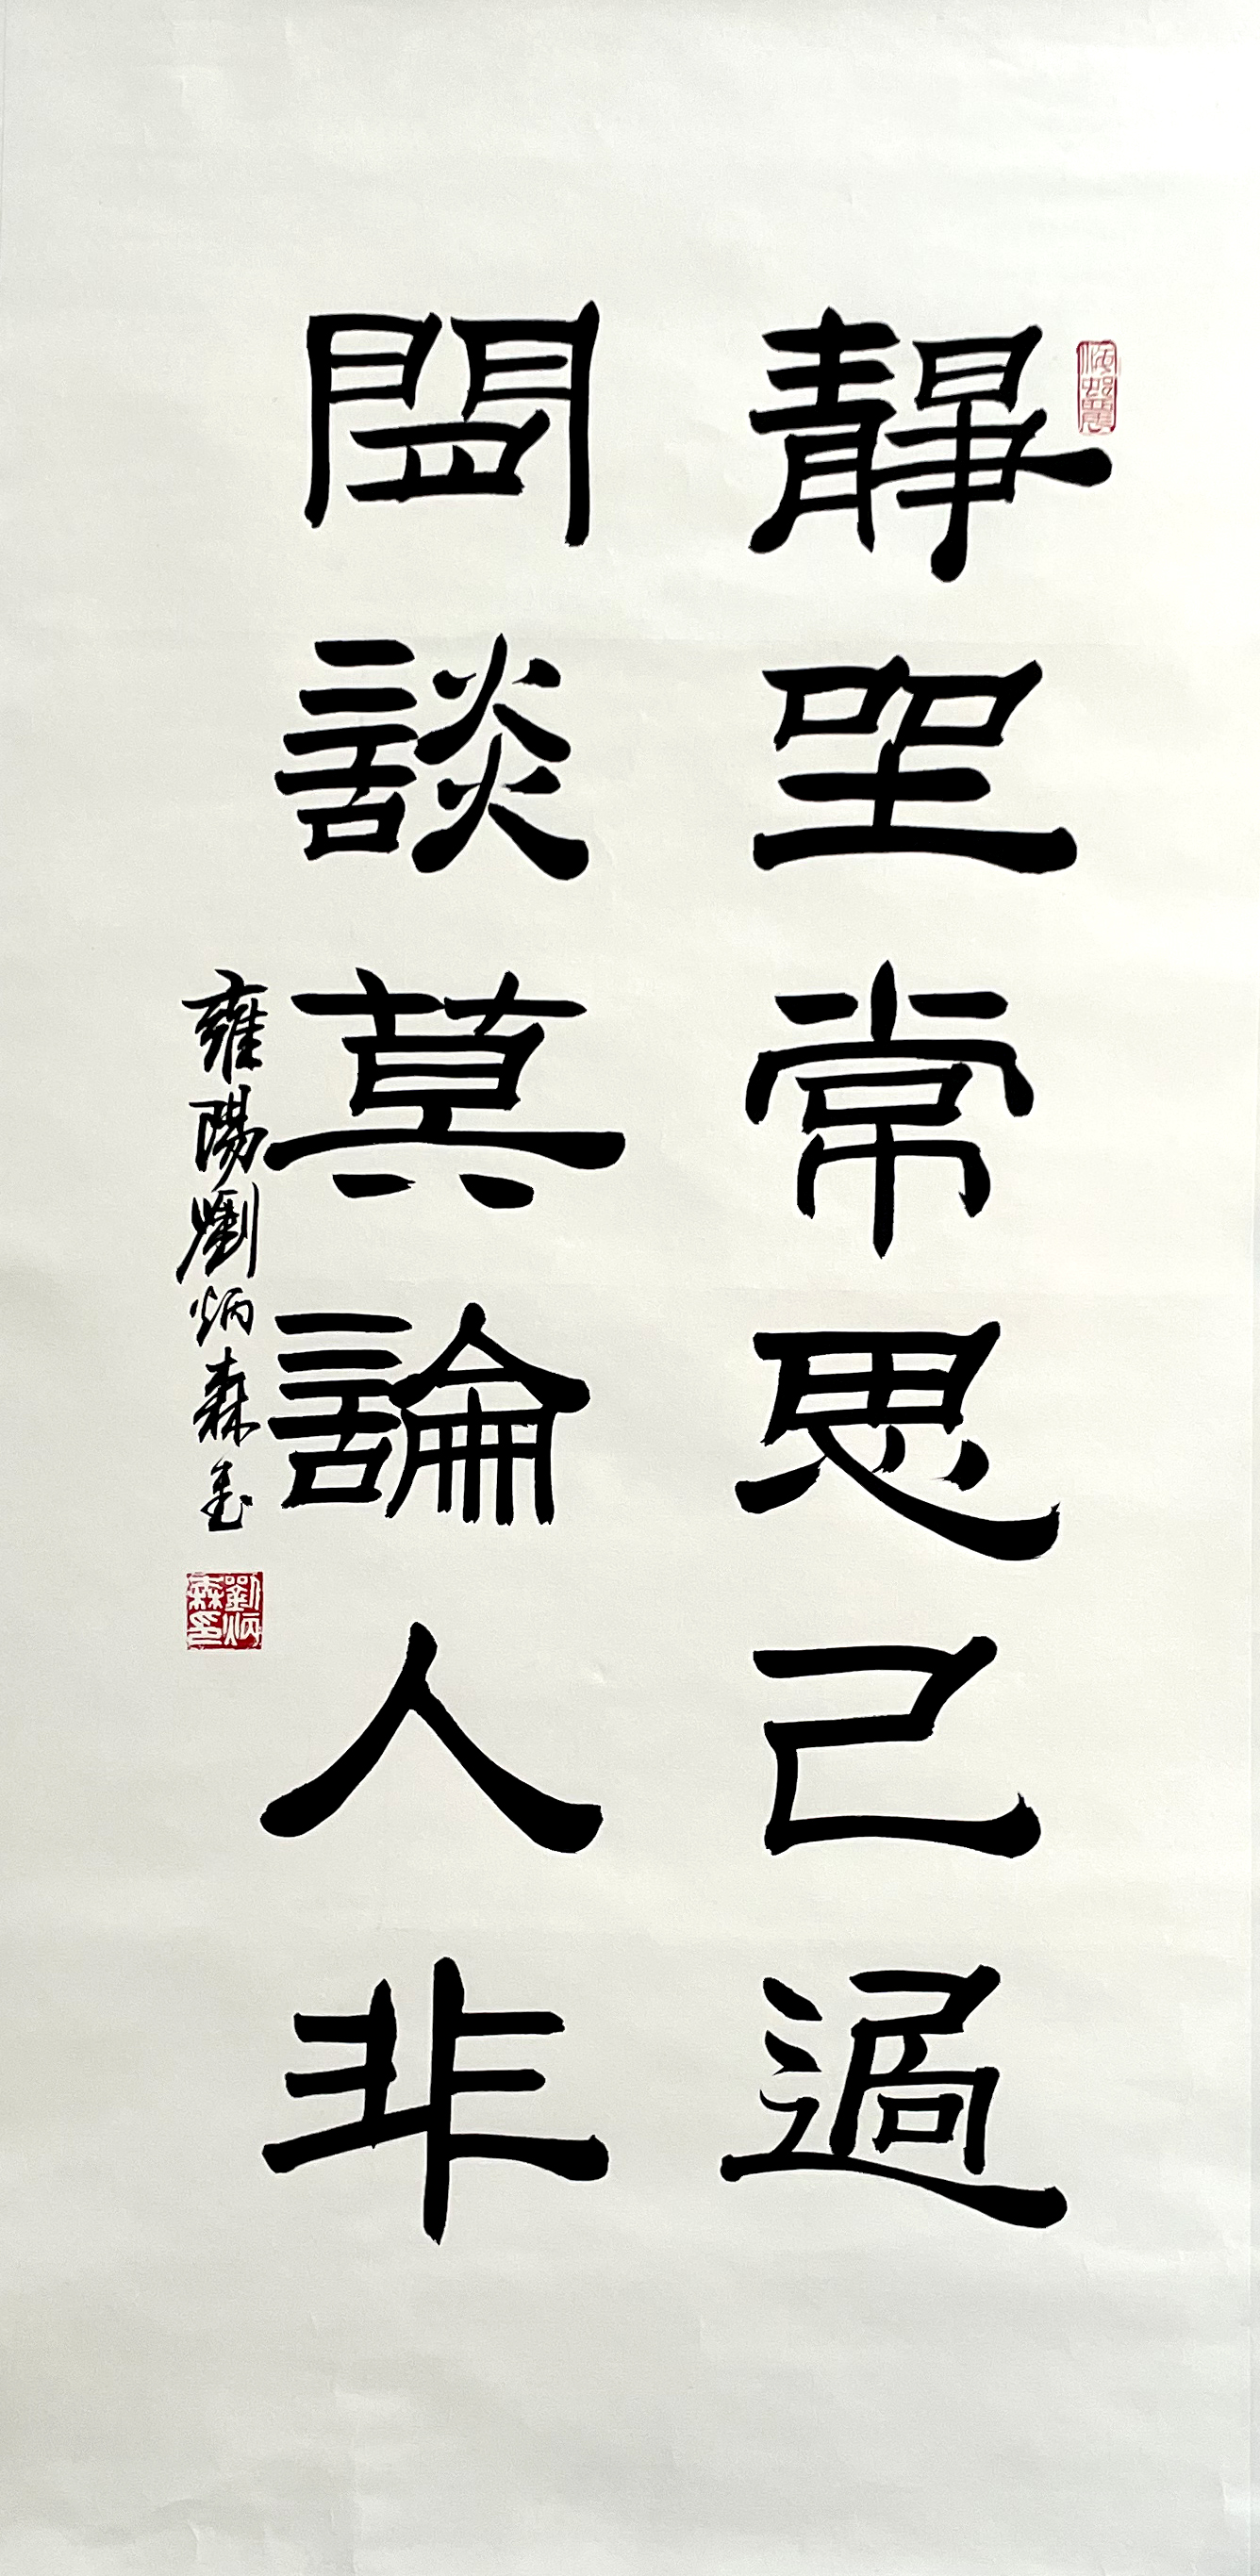 靜坐常思己過
閒談莫論人非
雍陽劉炳森書
劉炳森印